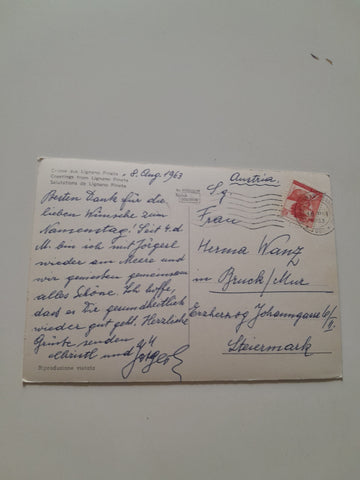 Grüsse aus Lignano Pineta
Greetings from Lignano Pineta
Salutations de Lignano Pineta
8. Aug. 1963
Besten Dank für die
lieben Wünsche zum
Namenstag! Seit 4. d.
M. bin ich mit Jörgerl
wieder am Meere und
wir geniesten gemeinsam
alles Schöne. Ich hoffe,
daß es Dir gesundheitlich
wieder gut geht. Herzliche
Grüße senden
Christl und Jörgerl
Riproduzione vietata
Austria
Sg
Frau
Herma Wanz
in Bruck/Mur
Erzherzog Johanngasse 6/II
Steiermark